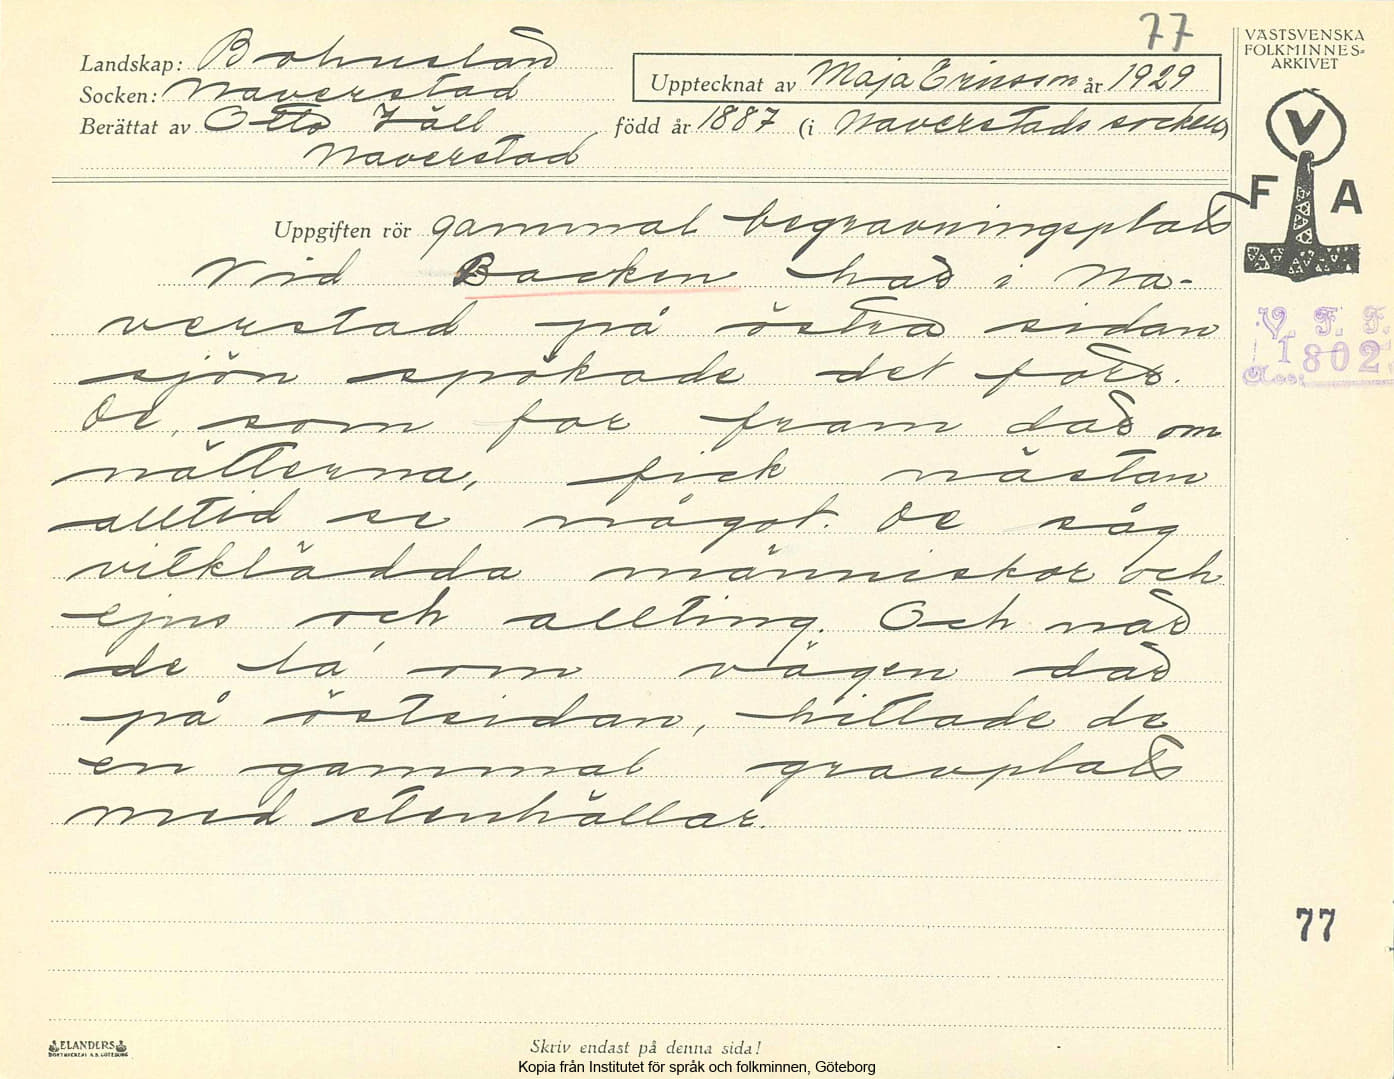 77
VÄSTSVENSKA
FOLKMINNES-
ARKIVET
Landskap: Bohuslän
Socken: Naverstad
Upptecknat av Maja Ericsson år 1929
Berättat av Otto Häll född år 1887 (i Naverstads socken)
Naverstad
V
F A
Uppgiften rör gammal begravningsplats
Vid Backen här i Na-
verstad på östra sidan
sjön spökade det förr.
De, som for fram där om
nätterna, fick nästan
alltid se något. De såg
vitklädda människor och
ljus och allting. Och när
de la' om vägen där
på östsidan, hittade de
en gammal gravplats
med stenhällar.
V. F. F.
1802
Acc.
77
ELANDERS
BOKTRYCKERI A.B. GÖTEBORG
Skriv endast på denna sida!
Kopia från Institutet för språk och folkminnen, Göteborg